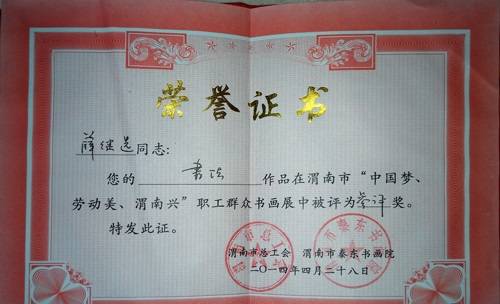 荣誉证书
薛继选同志：
您的 书法 作品在渭南市“中国梦、
劳动美、渭南兴”职工群众书画展中被评为荣誉奖。
特发此证。
渭南市总工会 渭南市秦东书画院
二〇一四年四月二十八日